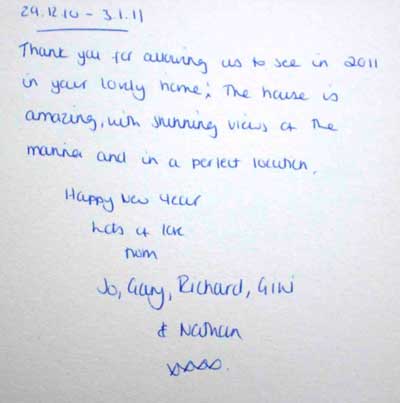 29.12.10 - 3.1.11
Thank you for allowing us to see in 2011
in your lovely home; The house is
amazing, with stunning views of the
manner and in a perfect location.
Happy New Year
Lots of love
from
Jo, Gary, Richard, Gini
& Nathan
xxxx.